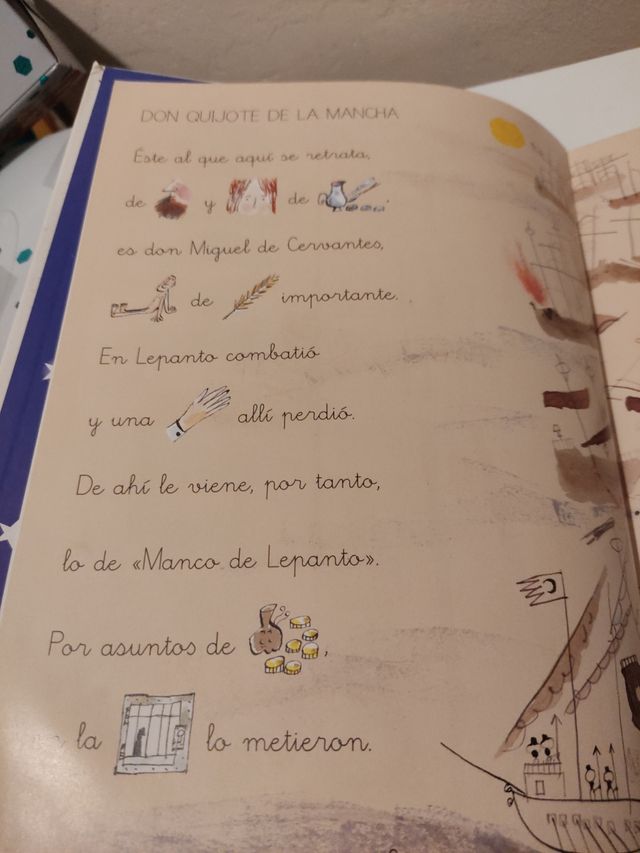 DON QUIJOTE DE LA MANCHA
Éste al que aquí se retrata,
de y de ,
es don Miguel de Cervantes,
de importante.
En Lepanto combatió
y una allí perdió.
De ahí le viene, por tanto,
lo de «Manco de Lepanto».
Por asuntos de ,
la lo metieron.